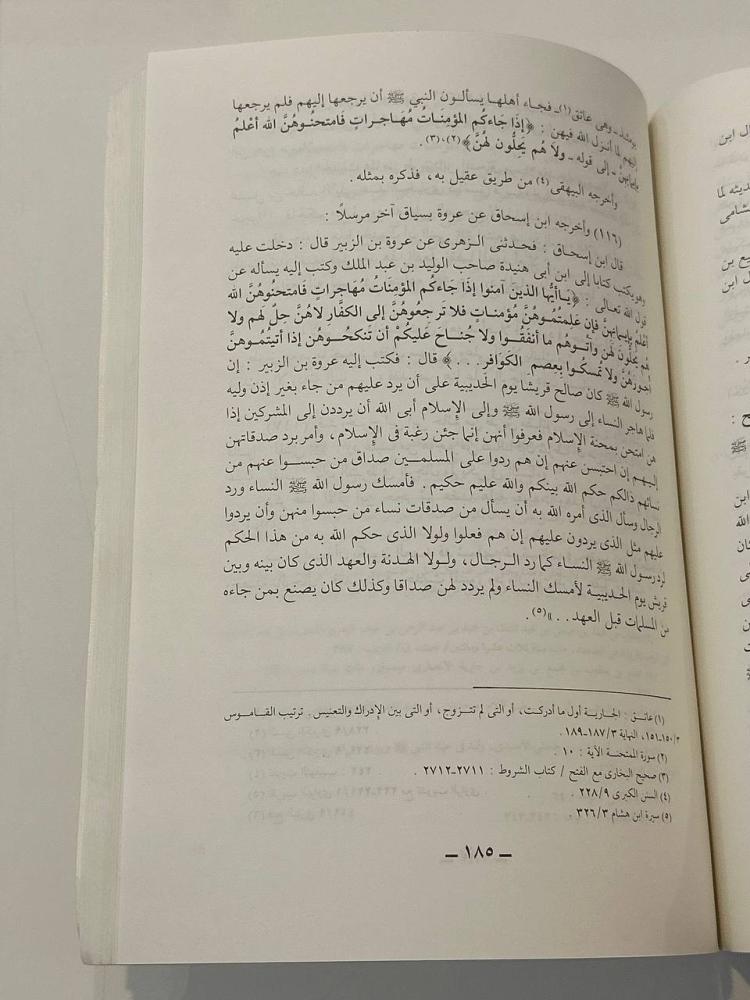 يومئذ - وهى عاتق(١) - فجاء أهلها يسألون النبي ﷺ أن يرجعها إليهم فلم يرجعها
إليهم لما أنزل الله فيهن : ﴿إذَا جَاءكُم المؤمِنَاتُ مُهَاجراتٍ فَامتحنُوهُنَّ الله أعْلمُ
بإيمانهنَّ﴾ - إلى قوله - ولاَ هُم يَحِلُّون لهُنَّ﴾(٢)،(٣).
وأخرجه البيهقى(٤) من طريق عقيل به ، فذكره بمثله .
(١١٦) وأخرجه ابن إسحاق عن عروة بسياق آخر مرسلاً :
قال ابن إسحاق : فحدثنى الزهرى عن عروة بن الزبير قال : دخلت عليه
وهو يكتب كتابا إلى ابن أبى هنيدة صاحب الوليد بن عبد الملك وكتب إليه يسأله عن
قول الله تعالى : ﴿يَاأيُّها الذينَ آمنوا إذَا جَاءكُم المؤمِنَاتُ مُهَاجراتٍ فَامتحنُوهُنَّ الله
أعْلمُ بإيمانهنَّ فإن عَلِمتُمُوهُنَّ مُؤمنـاتٍ فلا تَرجعُوهُنَّ إلى الكفَّارِ لاهُنَّ حِلٌ لهم ولا
هُم يحلُّونَ لهنَ وآتُـوهُم ما أنفقُـوا ولا جُنـاحَ عَليكُمْ أن تَنكحُـوهُن إذا أتيتُمُوهنَّ
أجُورَهُنَّ ولا تمسكُوا بِعصمِ الكوَافر . . . ﴾ قال : فكتب إليه عروة بن الزبير : إن
رسول الله ﷺ كان صالح قريشا يوم الحديبية على أن يرد عليهم من جاء بغير إذن وليه
فلما هاجر النساء إلى رسول الله ﷺ وإلى الإسلام أبى الله أن يرددن إلى المشركين إذا
هن امتحن بمحنة الإسلام فعرفوا أنهن إنما جئن رغبة فى الإسلام ، وأمر برد صدقاتهن
إليهم إن احتبسن عنهم إن هم ردوا على المسلمـين صداق من حبسـوا عنهم من
نسائهم ذالكم حكم الله بينكم والله عليم حكيم . فأمسك رسول الله ﷺ النساء ورد
الرجال وسأل الذى أمره الله به أن يسأل من صدقات نساء من حبسوا منهن وأن يردوا
عليهم مثل الذى يردون عليهم إن هم فعلوا ولولا الذى حكم الله به من هذا الحكم
لرد رسول الله ﷺ النساء كما رد الرجال ، ولولا الهدنة والعهد الذى كان بينه وبين
قريش يوم الحديبية لأمسك النساء ولم يردد لهن صداقا وكذلك كان يصنع بمن جاءه
من المسلمات قبل العهد . . »(٥) .
(١) عاتق : الجارية أول ما أدركت ، أو التى لم تتزوج ، أو التى بين الإدراك والتعنيس . ترتيب القاموس
٣/ ١٥٠ـ١٥١، النهاية ٣/ ١٨٧ـ١٨٩ .
(٢) سورة الممتحنة الآية : ١٠ .
(٣) صحيح البخارى مع الفتح / كتاب الشروط : ٢٧١١ـ٢٧١٢ .
(٤) السنن الكبرى ٩/ ٢٢٨ .
(٥) سيرة ابن هشام ٣/ ٣٢٦ .
ـ ١٨٥ ـ